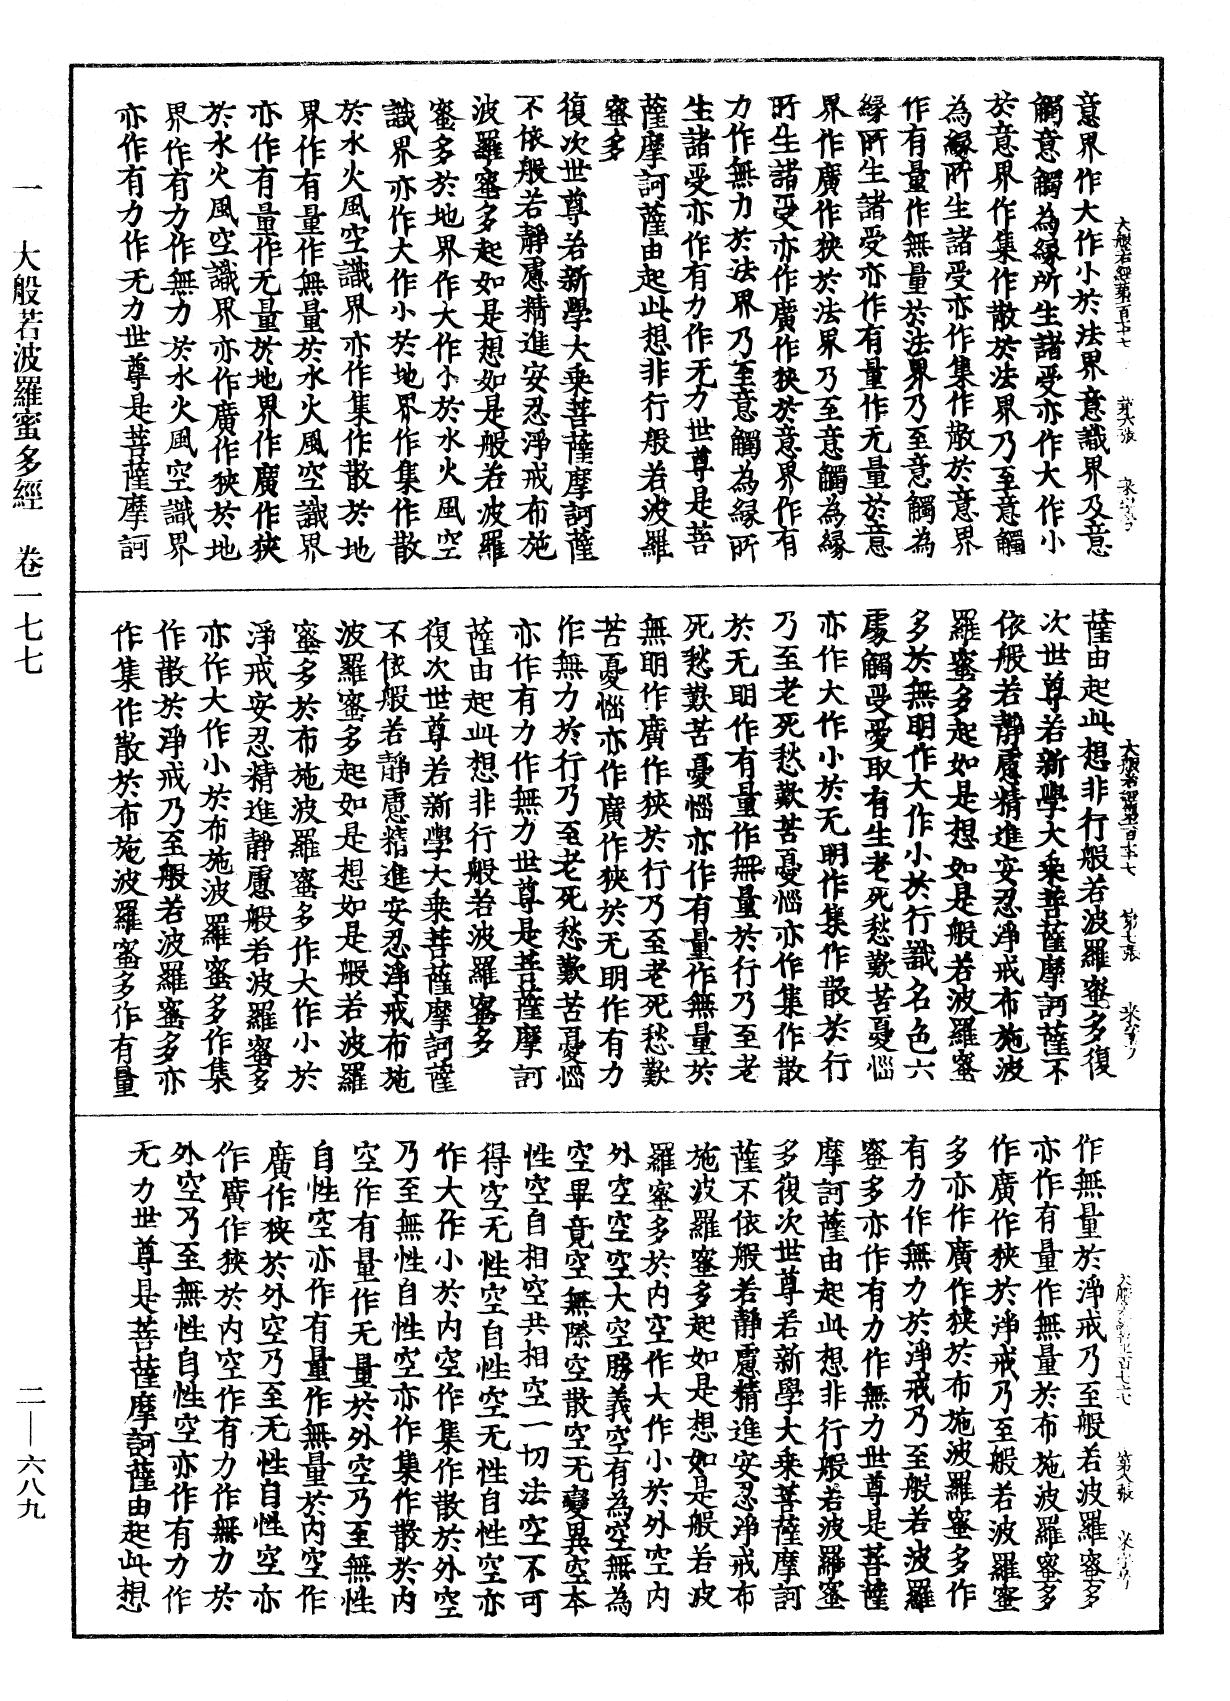 意界作大作小於法界意識界及意
觸意觸為緣所生諸受亦作大作小
於意界作集作散於法界乃至意觸
為緣所生諸受亦作集作散於意界
作有量作無量於法界乃至意觸為
緣所生諸受亦作有量作无量於意
界作廣作狹於法界乃至意觸為緣
所生諸受亦作廣作狹於意界作有
力作無力於法界乃至意觸為緣所
生諸受亦作有力作无力世尊是菩
薩摩訶薩由起此想非行般若波羅
蜜多
復次世尊若新學大乘菩薩摩訶薩
不依般若靜慮精進安忍淨戒布施
波羅蜜多起如是想如是般若波羅
蜜多於地界作大作小於水火風空
識界亦作大作小於地界作集作散
於水火風空識界亦作集作散於地
界作有量作無量於水火風空識界
亦作有量作无量於地界作廣作狹
於水火風空識界亦作廣作狹於地
界作有力作無力於水火風空識界
亦作有力作无力世尊是菩薩摩訶
薩由起此想非行般若波羅蜜多復
次世尊若新學大乘菩薩摩訶薩不
依般若靜慮精進安忍淨戒布施波
羅蜜多起如是想如是般若波羅蜜
多於無明作大作小於行識名色六
處觸受愛取有生老死愁歎苦憂惱
亦作大作小於无明作集作散於行
乃至老死愁歎苦憂惱亦作集作散
於无明作有量作無量於行乃至老
死愁歎苦憂惱亦作有量作無量於
無明作廣作狹於行乃至老死愁歎
苦憂惱亦作廣作狹於无明作有力
作無力於行乃至老死愁歎苦憂惱
亦作有力作無力世尊是菩薩摩訶
薩由起此想非行般若波羅蜜多
復次世尊若新學大乘菩薩摩訶薩
不依般若靜慮精進安忍淨戒布施
波羅蜜多起如是想如是般若波羅
蜜多於布施波羅蜜多作大作小於
淨戒安忍精進靜慮般若波羅蜜多
亦作大作小於布施波羅蜜多作集
作散於淨戒乃至般若波羅蜜多亦
作集作散於布施波羅蜜多作有量
作無量於淨戒乃至般若波羅蜜多
亦作有量作無量於布施波羅蜜多
作廣作狹於淨戒乃至般若波羅蜜
多亦作廣作狹於布施波羅蜜多作
有力作無力於淨戒乃至般若波羅
蜜多亦作有力作無力世尊是菩薩
摩訶薩由起此想非行般若波羅蜜
多復次世尊若新學大乘菩薩摩訶
薩不依般若靜慮精進安忍淨戒布
施波羅蜜多起如是想如是般若波
羅蜜多於內空作大作小於外空內
外空空空大空勝義空有為空無為
空畢竟空無際空散空无變異空本
性空自相空共相空一切法空不可
得空无性空自性空无性自性空亦
作大作小於內空作集作散於外空
乃至無性自性空亦作集作散於內
空作有量作无量於外空乃至無性
自性空亦作有量作無量於內空作
廣作狹於外空乃至无性自性空亦
作廣作狹於內空作有力作無力於
外空乃至無性自性空亦作有力作
无力世尊是菩薩摩訶薩由起此想
大般若經第一百七十七 第六張
大般若經第一百七十七 第七張
第八張
一 大般若波羅蜜多經 卷一七七
二—六八九